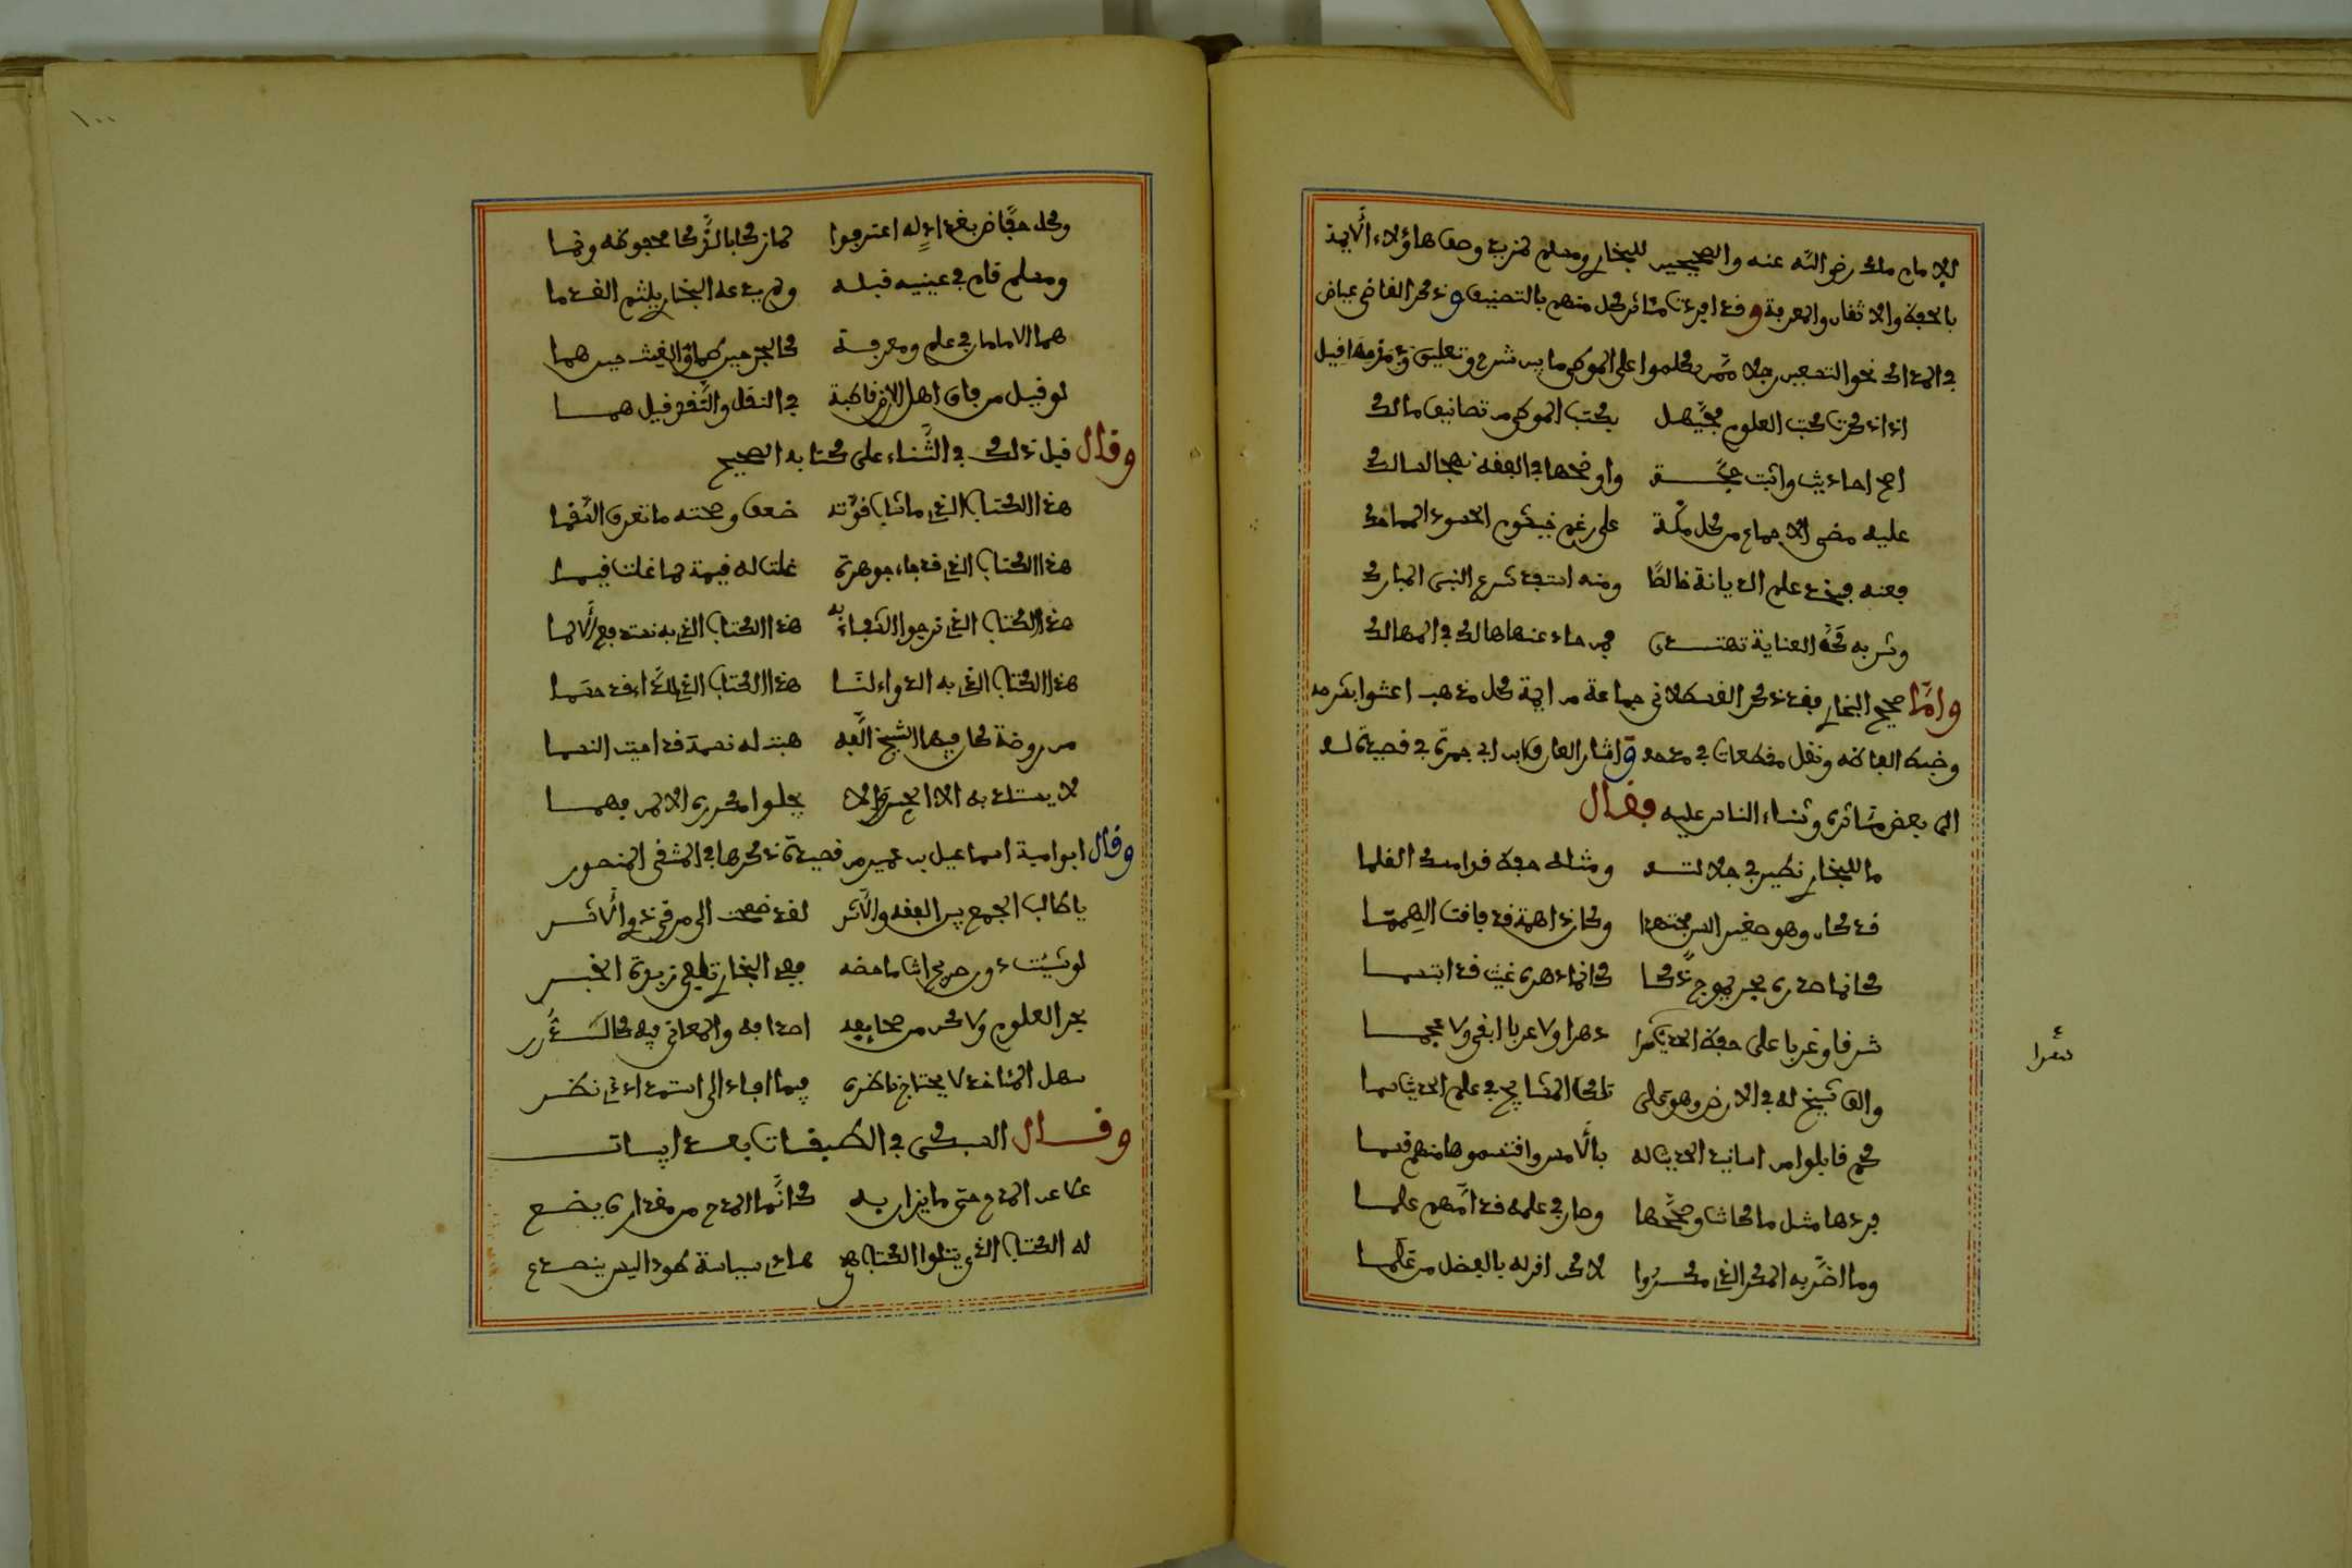 للإمام ملك رضي الله عنه والصحيحين للبخاري ومسلم لمزيد وصف هاؤلاء الأيمة
بالحفظ والاتقان والمعرفة وقد افردت مئاثر كل منهم بالتصنيف وذكر القاضي عياض
في المدارك نحو التسعين رجلا ممن تكلموا على الموطى ما بين شرح وتعليق ومما قيل
اذا ذكرت كتب العلوم فحيهل بكتب الموطى من تصانيف مالك
اصح احاديث واثبت حجة واوضحها في الفقه نهجا لسالك
عليه مضى الاجماع من كل ملة على رغم خيشوم الحسود المماحك
فعنه فخذ علم الديانة خالصا ومنه استفد شرع النبي المبارك
وشد به كف العناية تهتدي فمن حاد عنها هالك في المهالك
وامّا صحيح البخاري فقد ذكر القسطلاني جماعة من ايمة كل مذهب اعتنوا بشرحه
وضبط الفاظه ونقل مقطعات في مدحه واشار العارف ابن ابي جمرة في قصيدة له
الى بعض مئاثره وثناء الناس عليه فقال
ما للبخاري نظير في جلالته ومثله حفظه قرامسك القلما
قد كان وهو صغير السن مجتهدا وكان ذا همة قد فاقت الهمما
كانما صدره بحر يموج ذكا كانما دهره غيث قد ابتسما
شرقا وغربا على حفظ الحديث دهرا ولا عربا ابقى ولا عجما
سفرا
والف شيخ له في الارض وهو على تلك المشايخ في علم الحديث سما
كم قابلوا من اسانيد الحديث له بالأمس واقتسموها منهم قسما
فردها مثل ما كانت وصححها وصار في علمه قد امهم علما
وما اضر به المكر الذي مكروا لاكن اقر له بالفضل من علما
١٠٠
وكل حفاظ بغداد له اعترفوا لما زكا بالذكا محفوظه ونما
ومسلم قام في عينيه قبله ولم يدع البخاري يلثم القدما
هما الامامان في علم ومعرفة كالبحر حين طما والغيث حين هما
لو قيل من فاق اهل الارض قاطبة في النقل والنقد قيل هما
وقال قبل ذلك في الثناء على كتابه الصحيح
هذا الكتاب الذي ما شاب قوته ضعف وصحته ما تعرف السقما
هذا الكتاب الذي قد جاء جوهرة غلت له قيمة لما غلت قيما
هذا الكتاب الذي نرجوا الشفاء به هذا الكتاب الذي به نستدفع الألما
هذا الكتاب الذي به الدواء لنا هذا الكتاب الذي للداء قد حسما
من روضة كان فيها الشيخ الفه هبت له نسمة قد احيت النسما
لا يستلذ به الا الحديث ولا يجلوا مكرره الا لمن فهما
وقال ابو امية اسماعيل بن عمير من قصيدة ذكرها في المشفى المنصور
يا طالب الجمع بين الفقه والأثر لقد نصحت الى مرقى ذوي الأثر
لو شئت ورد صريح اثما محضه ففي البخاري تلقى زبدة الخبر
بحر العلوم ولاكن من صحايفه اصدافه والمعاني فيه كالدرر
سهل المئاخذ لا يحتاج ناظره فيما افاد الى استمداد ذي نظر
وقال السبكي في الطبقات بعد ابيات
علا عن المدح حتى ما يزان به كانما المدح من مقداره يضع
له الكتاب الذي يتلوا الكتاب هدى هادي سيادة طود اليس ينصدع